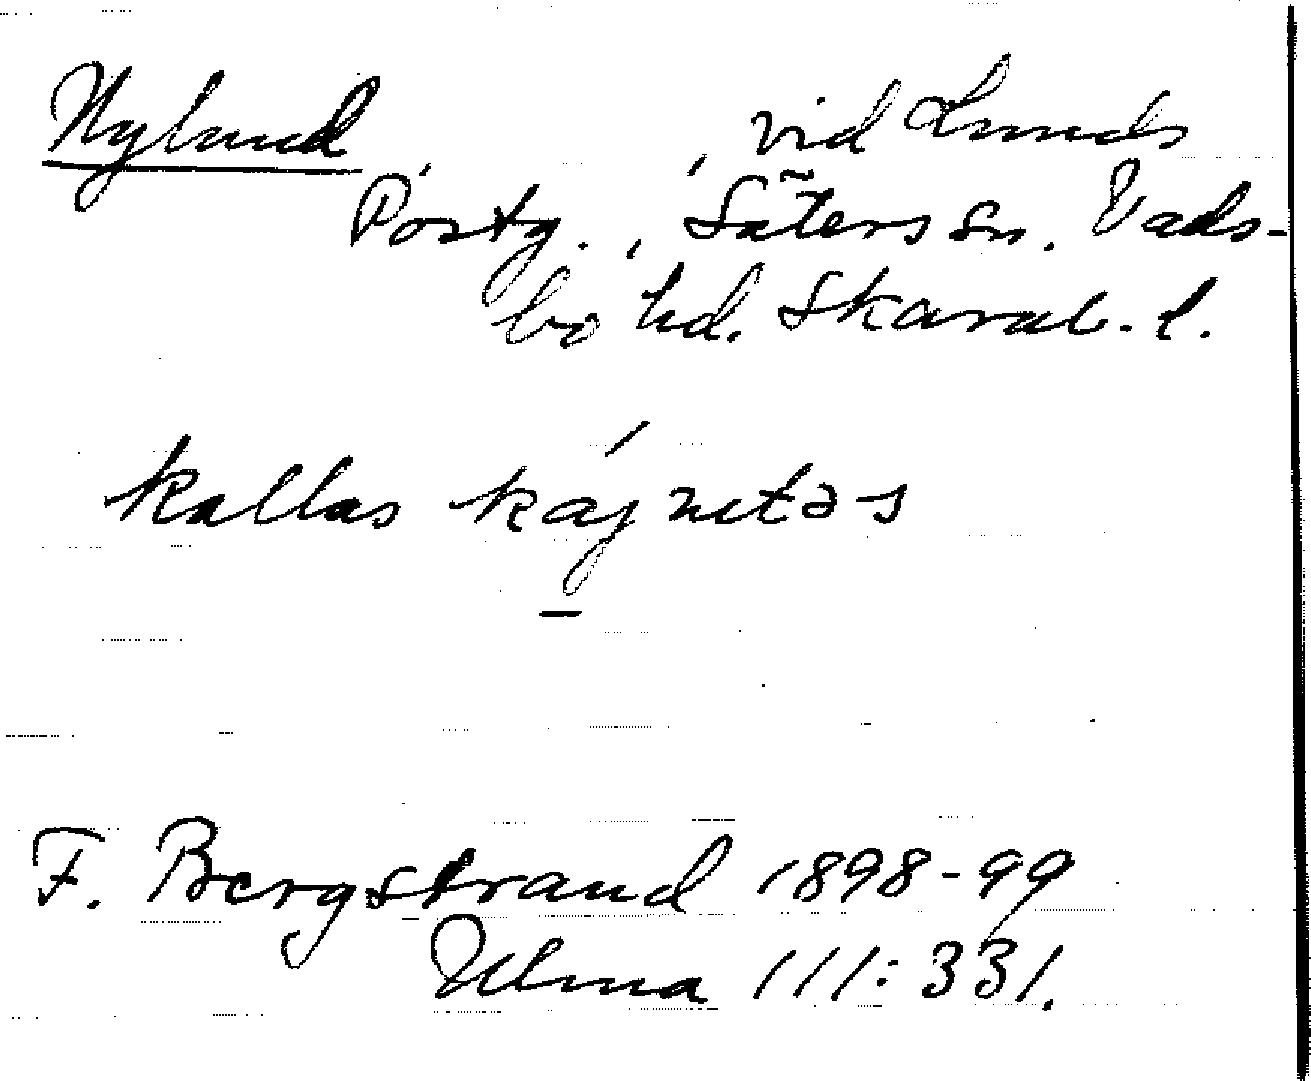 Nylund , vid Lunds
Postg., Säters sn. Vads-
bo hd. Skarab. l.
kallas
F. Bergstrand 1898-99
Ulma 111:331.